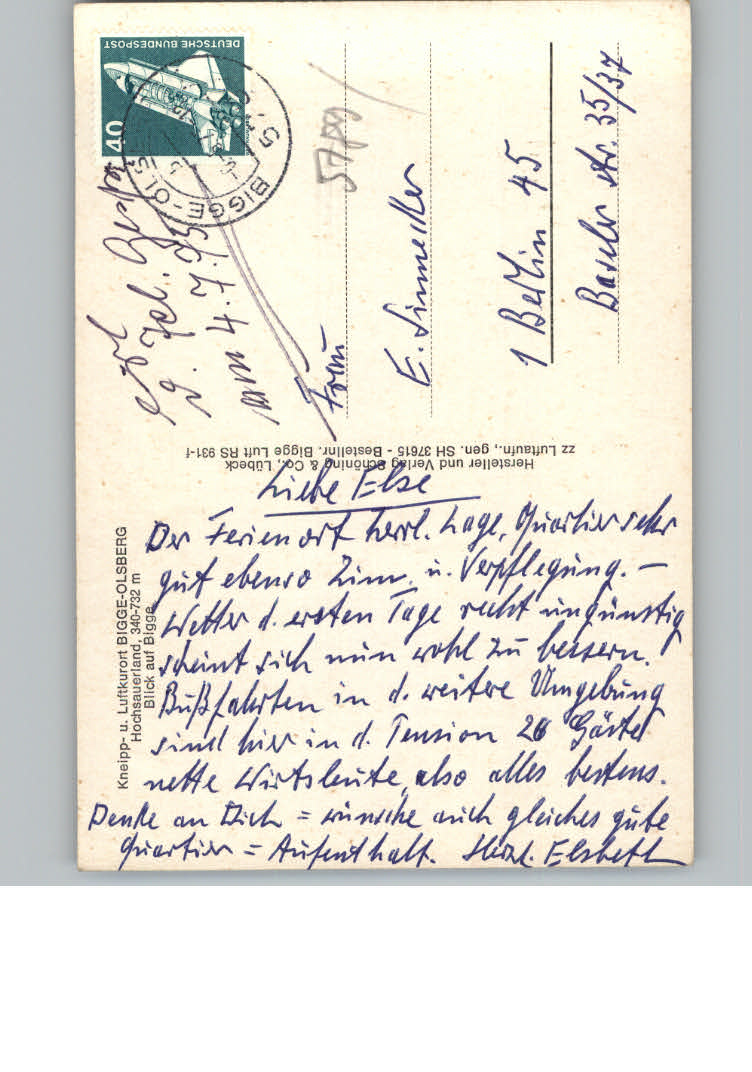 DEUTSCHE BUNDESPOST
40
BIGGE-OLSBERG
5789
am 4.7.
Frau
1 Berlin 45
Baseler Str. 35/37
Hersteller und Verlag Schöning & Co., Lübeck
zz Luftaufn., gen. SH 37615 - Bestellnr. Bigge Luft RS 931-f
Kneipp- u. Luftkurort BIGGE-OLSBERG
Hochsauerland, 340-732 m
Blick auf Bigge
Liebe Else
Der Ferienort herrl. Lage, Quartier sehr
gut ebenso Zim. u. Verpflegung. –
Wetter d. ersten Tage recht ungünstig
scheint sich nun wohl zu bessern.
Bußfahrten in d. weitere Umgebung
sind hier in d. Pension 26 Gäste
nette Wirtsleute, also alles bestens.
Denke an Dich = wünsche auch gleiches gute
Quartier = Aufenthalt. Herzl. Elsbeth